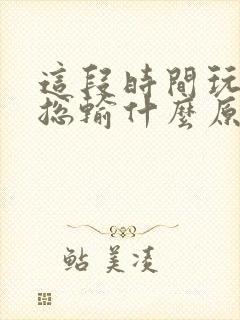 這段時間玩
總輸什麼原
鮎美凌